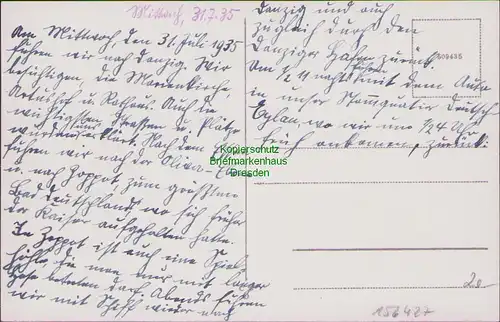 Mittwoch, 31.7.35
Am Mittwoch, den 31. Juli 1935
fuhren wir nach Danzig. Wir
besichtigen die Marienkirche
Artushof u. Rathaus. Auch die
wichtigsten Strassen u. Plätze
wurden uns erklärt. Nach dem
fuhren wir nach der Oliva-
u. nach Zoppot, zum größten
Bad Deutschlands, wo sich früher
der Kaiser aufgehalten hatte.
In Zoppot ist auch eine Spiel-
hölle die man nur mit langer
Hose betreten darf. Abends fuhren
wir mit Schiff wieder nach
Danzig und auch
zugleich durch den
Danziger Hafen zurück.
Um 1/2 11 nachts fuhren mit dem Auto
in unser Standquartier Deutsch
Eylau, wo wir um 1/2 4 Uhr
früh ankamen, zurück.
Kopierschutz
Briefmarkenhaus
Dresden
609435
156427